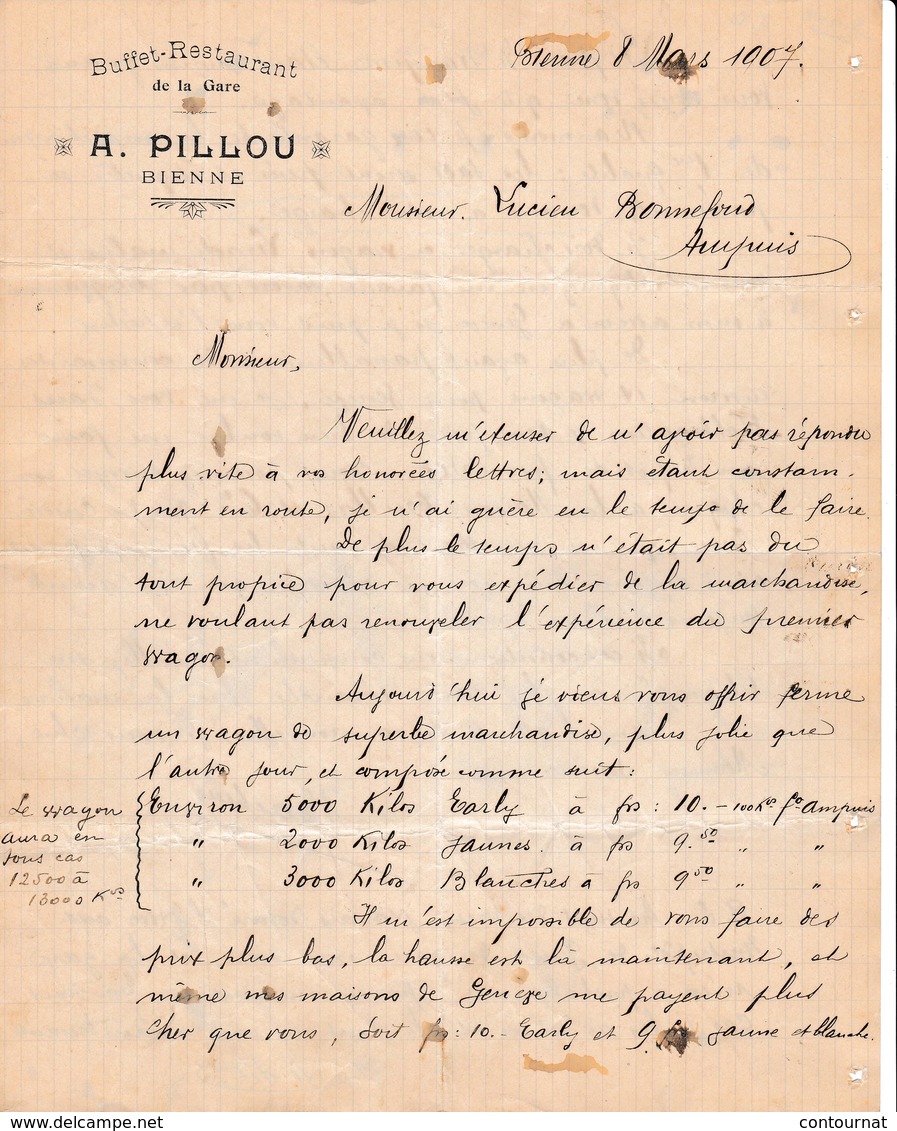 Buffet-Restaurant
de la Gare
A. PILLOU
BIENNE
Bienne 8 Mars 1907.
Monsieur. Lucien Bonnefond
Ampuis
Monsieur,
Veuillez m'excuser de n'avoir pas répondu
plus vite à vos honorées lettres; mais étant constam-
ment en route, je n'ai guère eu le temps de le faire.
De plus le temps n'était pas du
tout propice pour vous expédier de la marchandise,
ne voulant pas renouveler l'expérience du premier
wagon.
Aujourd'hui je viens vous offrir ferme
un wagon de superbe marchandise, plus jolie que
l'autre jour, et composé comme suit:
Le wagon
aura en
tous cas
12500 à
13000 Kos
Environ 5000 Kilos Early à frs: 10.- 100 Kos fco Ampuis
" 2000 Kilos jaunes à frs 9.50 " "
" 3000 Kilos Blanches à frs 9.50 " "
Il m'est impossible de vous faire des
prix plus bas, la hausse est là maintenant, et
même mes maisons de Genève me payent plus
cher que vous, soit frs: 10.- Early et 9. jaune et blanche.
contournat